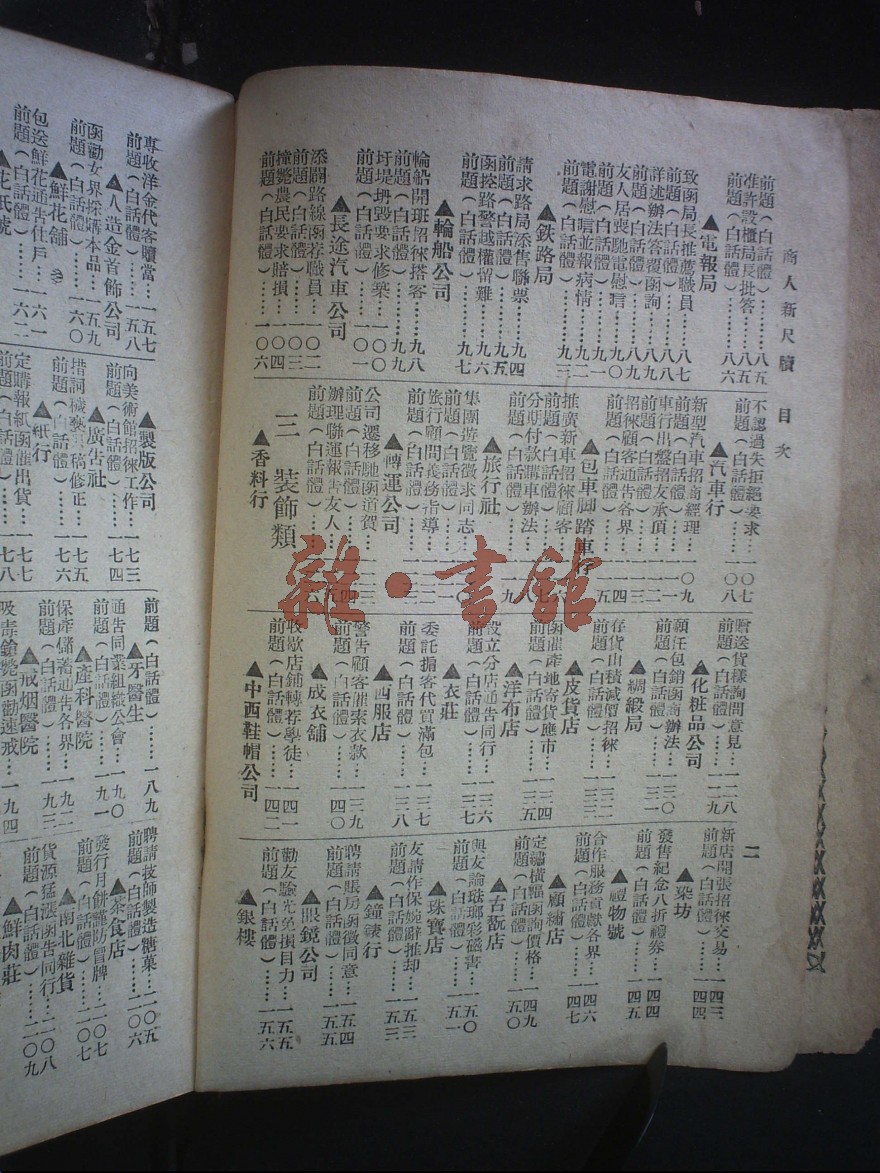 商人新尺牘 目次
二
前題(白話體)……八五
准許設櫃局長批答…八五
前題(白話體)……八六
▲電報局
致函局長推薦職員…八七
前題(白話體)……八八
詳述辦法答覆函詢…八九
前題(白話體)……八九
友人居喪馳電慰唁…九〇
前題(白話體)……九一
電謝慰唁並報病情…九二
前題(白話體)……九三
▲鉄路局
請求路局添售聯票…九四
前題(白話體)……九五
函控路警越權留難…九六
前題(白話體)……九七
▲輪船公司
輪船開班招徠搭客…九八
前題(白話體)……九九
圩堤坍毀要求修築…一〇〇
前題(白話體)……一〇一
▲長途汽車公司
添闢路線函荐職員…一〇二
前題(白話體)……一〇三
撞斃農民要求賠損…一〇四
前題(白話體)……一〇六
不認過失拒絕要求…一〇七
前題(白話體)……一〇八
▲汽車行
新型汽車招商經理…一〇九
前題(白話體)……一一〇
車行出盤招友承頂…一一一
前題(白話體)……一一二
招徠顧客通告各界…一一三
前題(白話體)……一一四
▲包車脚踏車行
推廣新車招徠顧客…一一六
前題(白話體)……一一七
分期付款購車辦法…一一八
前題(白話體)……一一九
▲旅行社
集團遊覽徵求同志…一二〇
前題(白話體)……一二一
旅行顧問義務指導…一二二
前題(白話體)……
▲轉運公司
公司遷移馳函道賀…一二三
前題(白話體)……一二四
辦理聯運報告友人…一二五
前題(白話體)……一二六
三 装飾類
▲香料行
贈送貨樣詢問意見…一二八
前題(白話體)……一二九
▲化粧品公司
願任包銷函商辦法…一三〇
前題(白話體)……一三一
▲綢緞局
存貨山積減價招徠…一三二
前題(白話體)……一三三
▲皮貨店
函催產地寄貨應市…一三四
前題(白話體)……一三五
▲洋布店
設立分店通告同行…一三六
前題(白話體)……
▲衣莊
委託掮客代買滿包…一三七
前題(白話體)……一三八
▲西服店
警告顧客催索衣款…一三九
前題(白話體)……一四〇
▲成衣舖
收歇店鋪轉荐學徒…一四一
前題(白話體)……一四二
▲中西鞋帽公司
新店開張招徠交易…一四三
前題(白話體)……一四四
▲染坊
發售紀念八折禮券…一四四
前題(白話體)……一四五
▲禮物號
合作服務貢獻各界…一四六
前題(白話體)……一四七
▲顧繡店
定繡橫幅函詢價格…一四九
前題(白話體)……一五〇
▲古翫店
與友論琺瑯彩磁書…一五〇
前題(白話體)……一五一
▲珠寶店
友請作保婉辭推却…一五三
前題(白話體)……一五三
▲鐘錶行
聘請賬房函徵同意…一五四
前題(白話體)……一五五
▲眼鏡公司
勸友驗光免損目力…一五五
前題(白話體)……一五六
▲銀樓
專收洋金代客贖當…一五七
前題(白話體)……一五八
▲人造金首飾公司
函勸女界採購本品…一五九
前題(白話體)……一六〇
▲鮮花舖
包送鮮花通告仕戶…一六一
前題(白話體)……一六二
▲製版公司
向美術館招徠工作…一七三
前題(白話體)……一七四
▲廣告社
措詞穢褻原稿修正…一七五
前題(白話體)……一七六
▲紙行
定購報紙函催出貨…一七七
前題(白話體)……一七八
前題(白話體)……一八九
▲牙醫生
通告同業組織公會…一九〇
前題(白話體)……一九一
▲產科醫院
保產儲蓄通告各界…一九二
前題(白話體)……一九三
▲戒烟醫院
吸毒鎗斃函勸速戒…一九四
聘請技師製造糖菓…二〇五
前題(白話體)……二〇六
▲茶食店
發行月餅謹防冒牌…二〇七
前題(白話體)……二〇七
▲南北雜貨
貨源猛漲函告同行…二〇八
前題(白話體)……二〇九
▲鮮肉莊
雜·書館